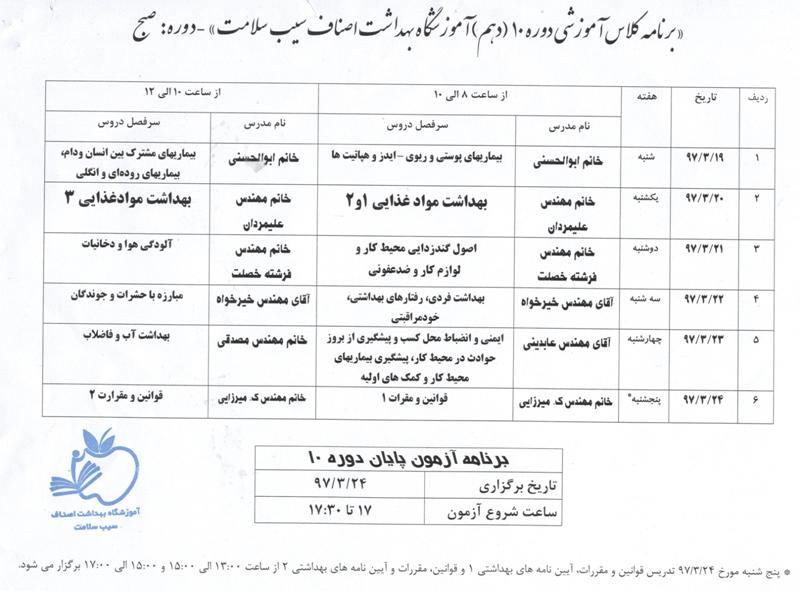 «برنامه کلاس آموزشی دوره ۱۰ (دهم) آموزشگاه بهداشت اصناف سیب سلامت» - دوره: صبح
ردیف تاریخ هفته از ساعت ۸ الی ۱۰ از ساعت ۱۰ الی ۱۲
نام مدرس سرفصل دروس نام مدرس سرفصل دروس
۱ ۹۷/۳/۱۹ شنبه خانم ابوالحسنی بیماریهای پوستی و ریوی – ایدز و هپاتیت ها خانم ابوالحسنی بیماریهای مشترک بین انسان ودام،
بیماریهای روده‌ای و انگلی
۲ ۹۷/۳/۲۰ یکشنبه خانم مهندس بهداشت مواد غذایی ۱و۲ خانم مهندس بهداشت موادغذایی ۳
علیمردان علیمردان
۳ ۹۷/۳/۲۱ دوشنبه خانم مهندس اصول گندزدایی محیط کار و خانم مهندس آلودگی هوا و دخانیات
فرشته خصلت لوازم کار و ضدعفونی فرشته خصلت
۴ ۹۷/۳/۲۲ سه شنبه آقای مهندس خیرخواه بهداشت فردی، رفتارهای بهداشتی، آقای مهندس خیرخواه مبارزه با حشرات و جوندگان
خودمراقبتی
۵ ۹۷/۳/۲۳ چهارشنبه آقای مهندس عابدینی ایمنی و انضباط محل کسب و پیشگیری از بروز خانم مهندس مصدقی بهداشت آب و فاضلاب
حوادث در محیط کار، پیشگیری بیماریهای
محیط کار و کمک های اولیه
۶ ۹۷/۳/۲۴ پنجشنبه* خانم مهندس ک. میرزایی قوانین و مقرات ۱ خانم مهندس ک. میرزایی قوانین و مقرارت ۲
برنامه آزمون پایان دوره ۱۰
تاریخ برگزاری ۹۷/۳/۲۴
ساعت شروع آزمون ۱۷ تا ۱۷:۳۰
آموزشگاه بهداشت اصناف
سیب سلامت
* پنج شنبه مورخ ۹۷/۳/۲۴ تدریس قوانین و مقررات، آیین نامه های بهداشتی ۱ و قوانین، مقررات و آیین نامه های بهداشتی ۲ از ساعت ۱۳:۰۰ الی ۱۵:۰۰ و ۱۵:۰۰ الی ۱۷:۰۰ برگزار می شود.